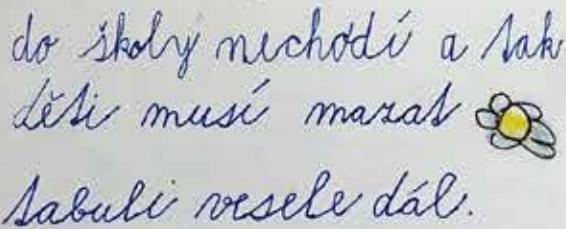 do školy nechodí a tak
děti musí mazat
tabuli vesele dál.